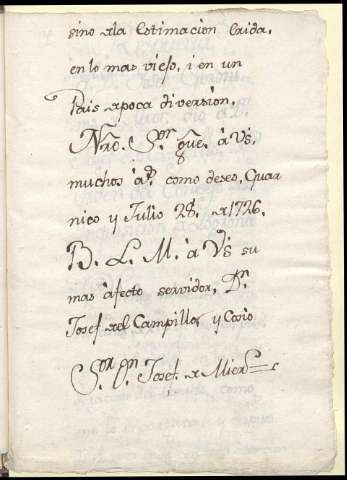 sino de la Estimaciòn caida,
en lo mas viejo, i en un
Pais de poca diversion,
Nrõ. Sor. gûe. à Vs.
muchos às. como deseo, Guar
nico y Julio 28. de 1726.
B. L. M. à Vs su
mas àfecto servidor, Dn.
Josef del Campillo, y Cosio
Sor. Dn. Josef. de Mier